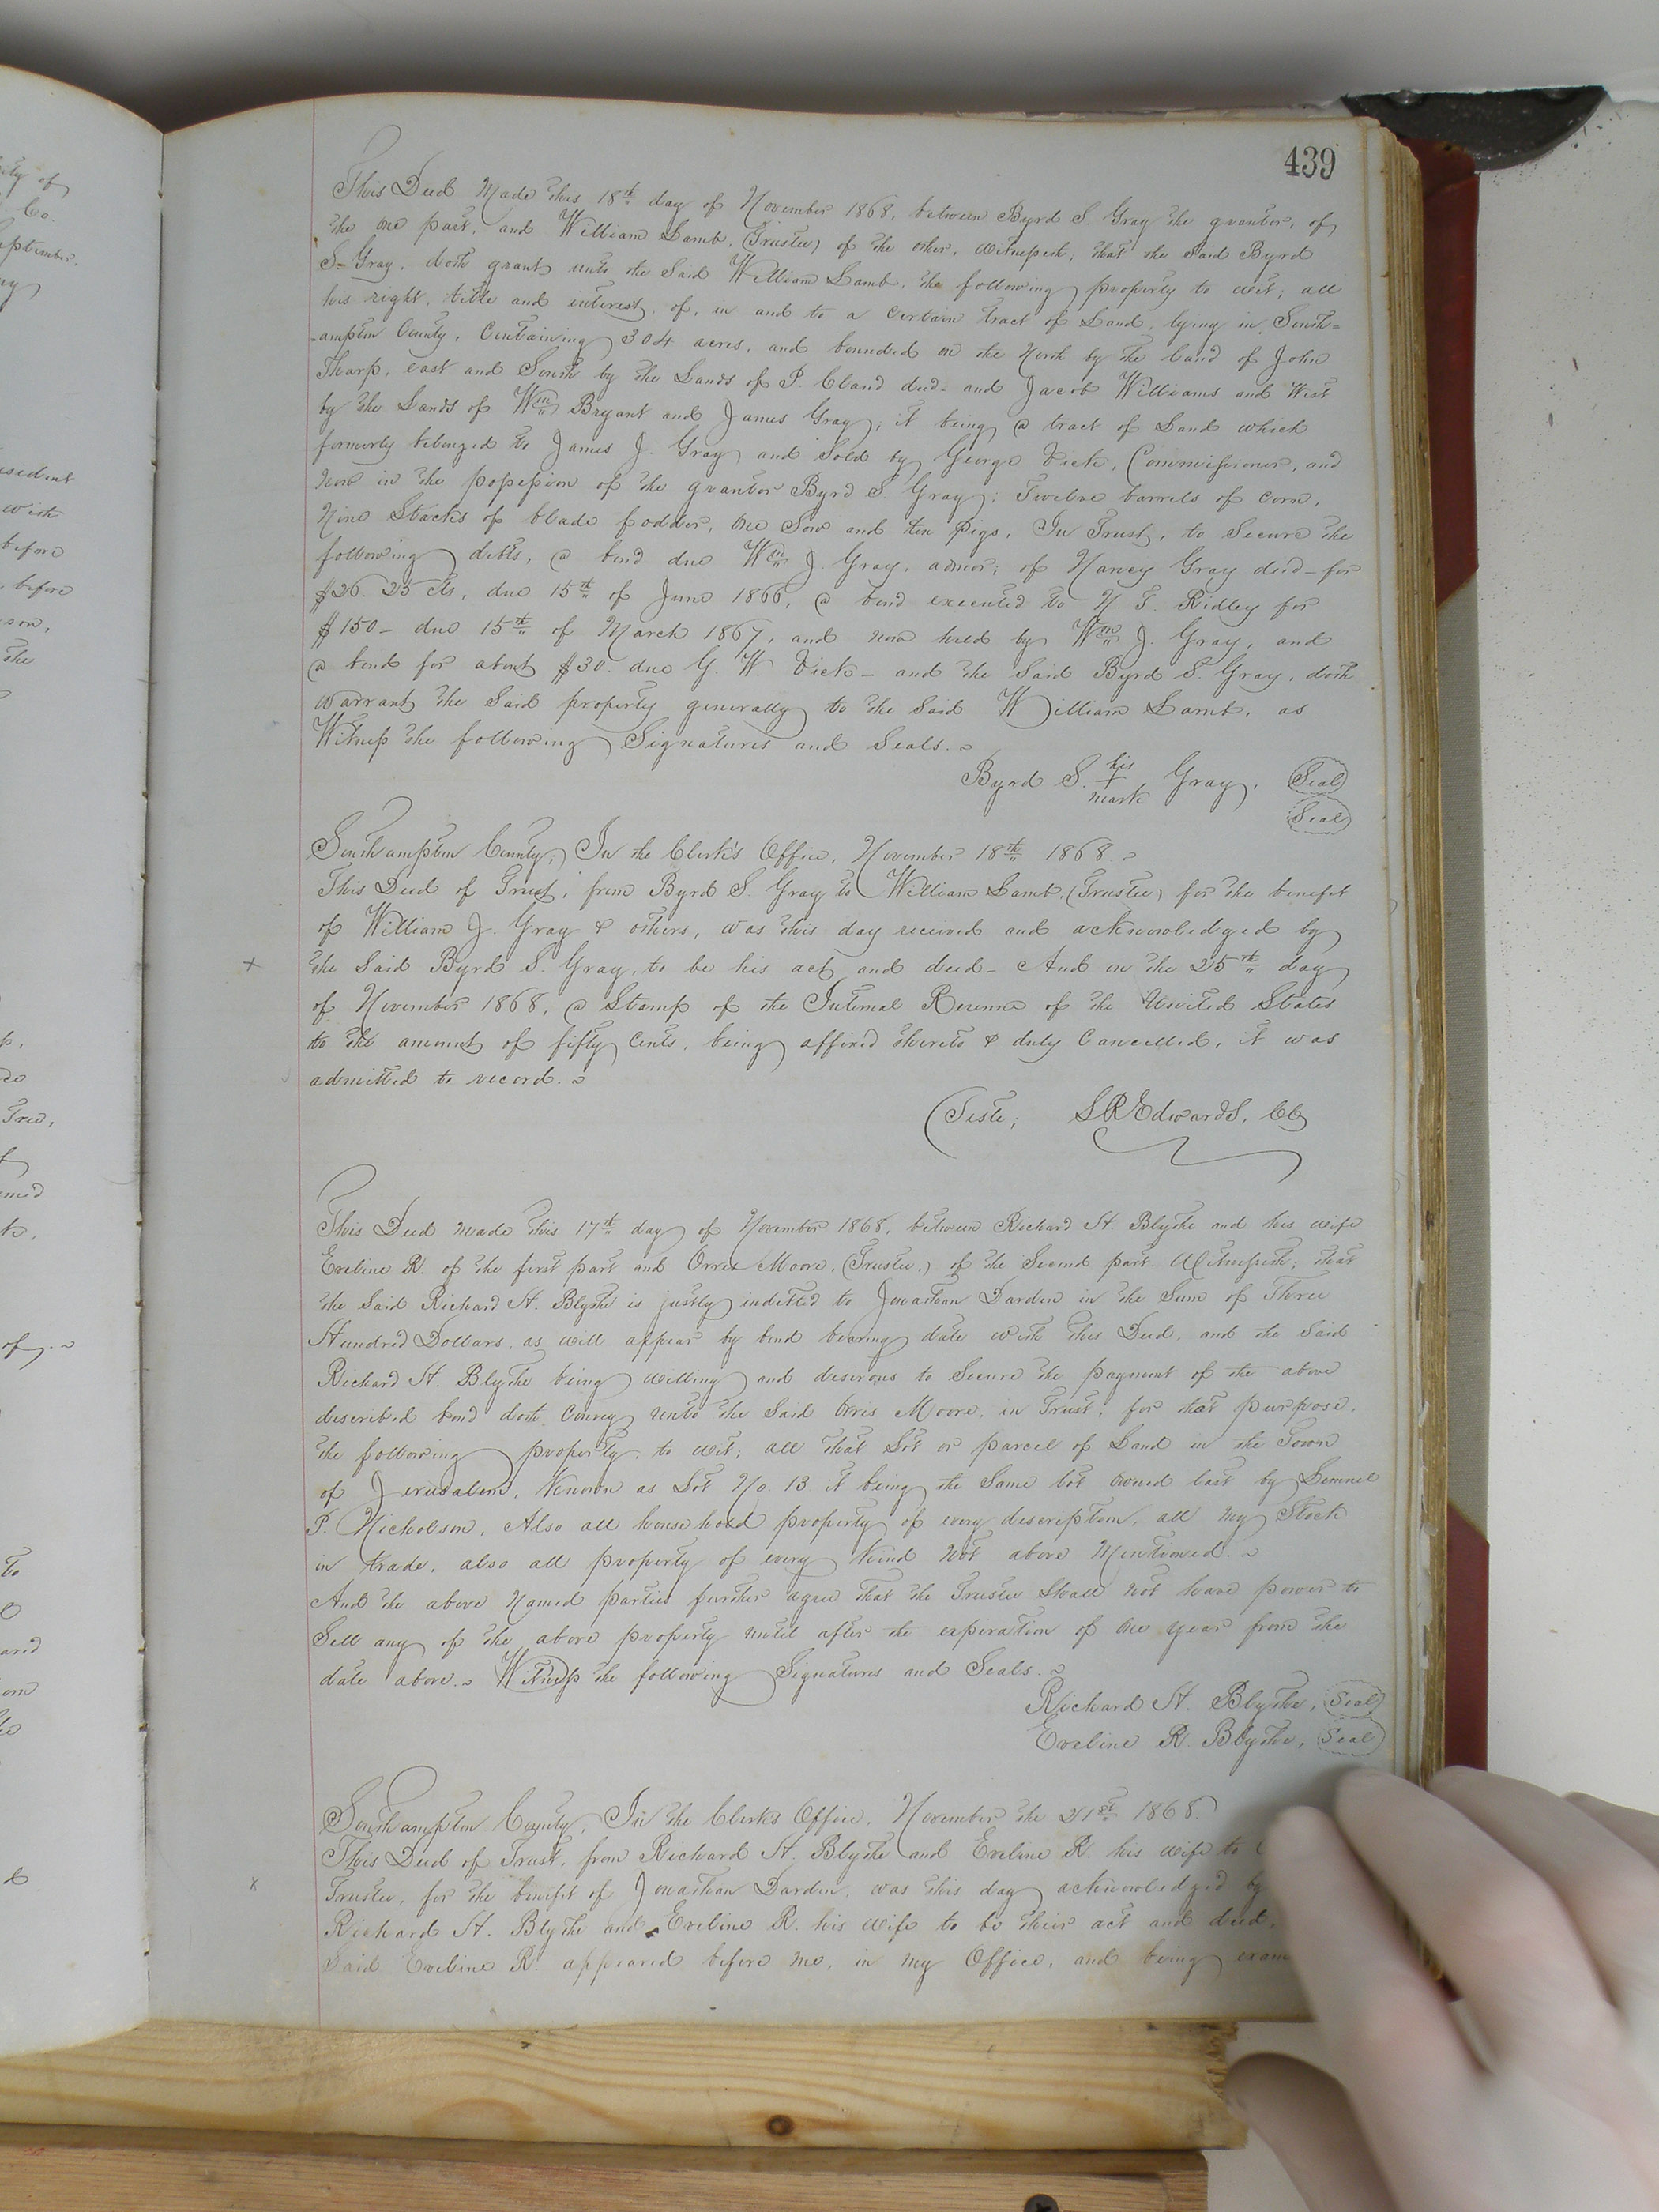 439
This Deed Made this 18th day of November 1868, between Byrd S. Gray the grantor, of
the one part, and William Lamb, (Trustee) of the other, Witnesseth; that the Said Byrd
S. Gray, doth grant unto the Said William Lamb, the following property to wit; all
his right, title and interest, of, in and to a certain tract of Land, lying in South=
=ampton County, Containing 304 acres, and bounded on the North by the land of John
Tharp, east and South by the Lands of P. Bland decd- and Jacob Williams and West
by the Lands of Wm Bryant and James Gray, it being a tract of Land which
formerly belonged to James J. Gray and Sold by George Vick, Commissioner, and
now in the possession of the grantor Byrd S. Gray; Twelve barrels of corn,
Nine Stacks of blade fodder, One Sow and ten Pigs, In Trust, to Secure the
following debts, a bond due Wm J. Gray, admor, of Nancy Gray decd- for
$26. 25 cts, due 15th of June 1866, a bond executed to N. T. Ridley for
$150- due 15th of March 1867, and now held by Wm J. Gray, and
a bond for about $30. due G. W. Vick- and the Said Byrd S. Gray, doth
warrant the Said property generally to the Said William Lamb, as
Witness the following Signatures and Seals.
Byrd S. his + mark Gray, Seal
Seal
Southampton County; In the Clerk's Office, November 18th 1868.
This Deed of Trust, from Byrd S. Gray to William Lamb, (Trustee) for the benefit
of William J. Gray & others, was this day received and acknowledged by
x the Said Byrd S. Gray, to be his act and deed- And on the 25th day
of November 1868, a Stamp of the Internal Revenue of the United States
to the amount of fifty Cents, being affixed thereto & duly Cancelled, it was
admitted to record.
Teste; L R Edwards, CC
This Deed made this 17th day of November 1868, between Richard H. Blythe and his wife
Eveline R. of the first part and Orris Moore, (Trustee.) of the Second part Witnesseth; that
the Said Richard H. Blythe is justly indebted to Jonathan Darden in the Sum of Three
Hundred Dollars, as will appear by bond bearing date with this Deed, and the Said
Richard H. Blythe being willing and desirous to Secure the payment of the above
described bond doth Convey unto the Said Orris Moore, in Trust, for that purpose,
the following property, to wit; all that Lot or parcel of Land in the Town
of Jerusalem, Known as Lot No. 13 it being the Same lot owned last by Lemuel
P. Nicholson, Also all household property of every description, all my Stock
in trade, also all property of every Kind not above Mentioned.
And the above Named parties further agree that the Trustee Shall not have power to
Sell any of the above property until after the expiration of one year from the
date above. Witness the following Signatures and Seals.
Richard H. Blythe, Seal
Eveline R. Blythe, Seal
Southampton County, In the Clerks Office, November the 21st 1868.
This Deed of Trust, from Richard H. Blythe and Eveline R. his wife to
x Trustee, for the benefit of Jonathan Darden, was this day acknowledged by
Richard H. Blythe and Eveline R. his wife to be their act and deed,
Said Eveline R. appeared before me, in my Office, and being exam